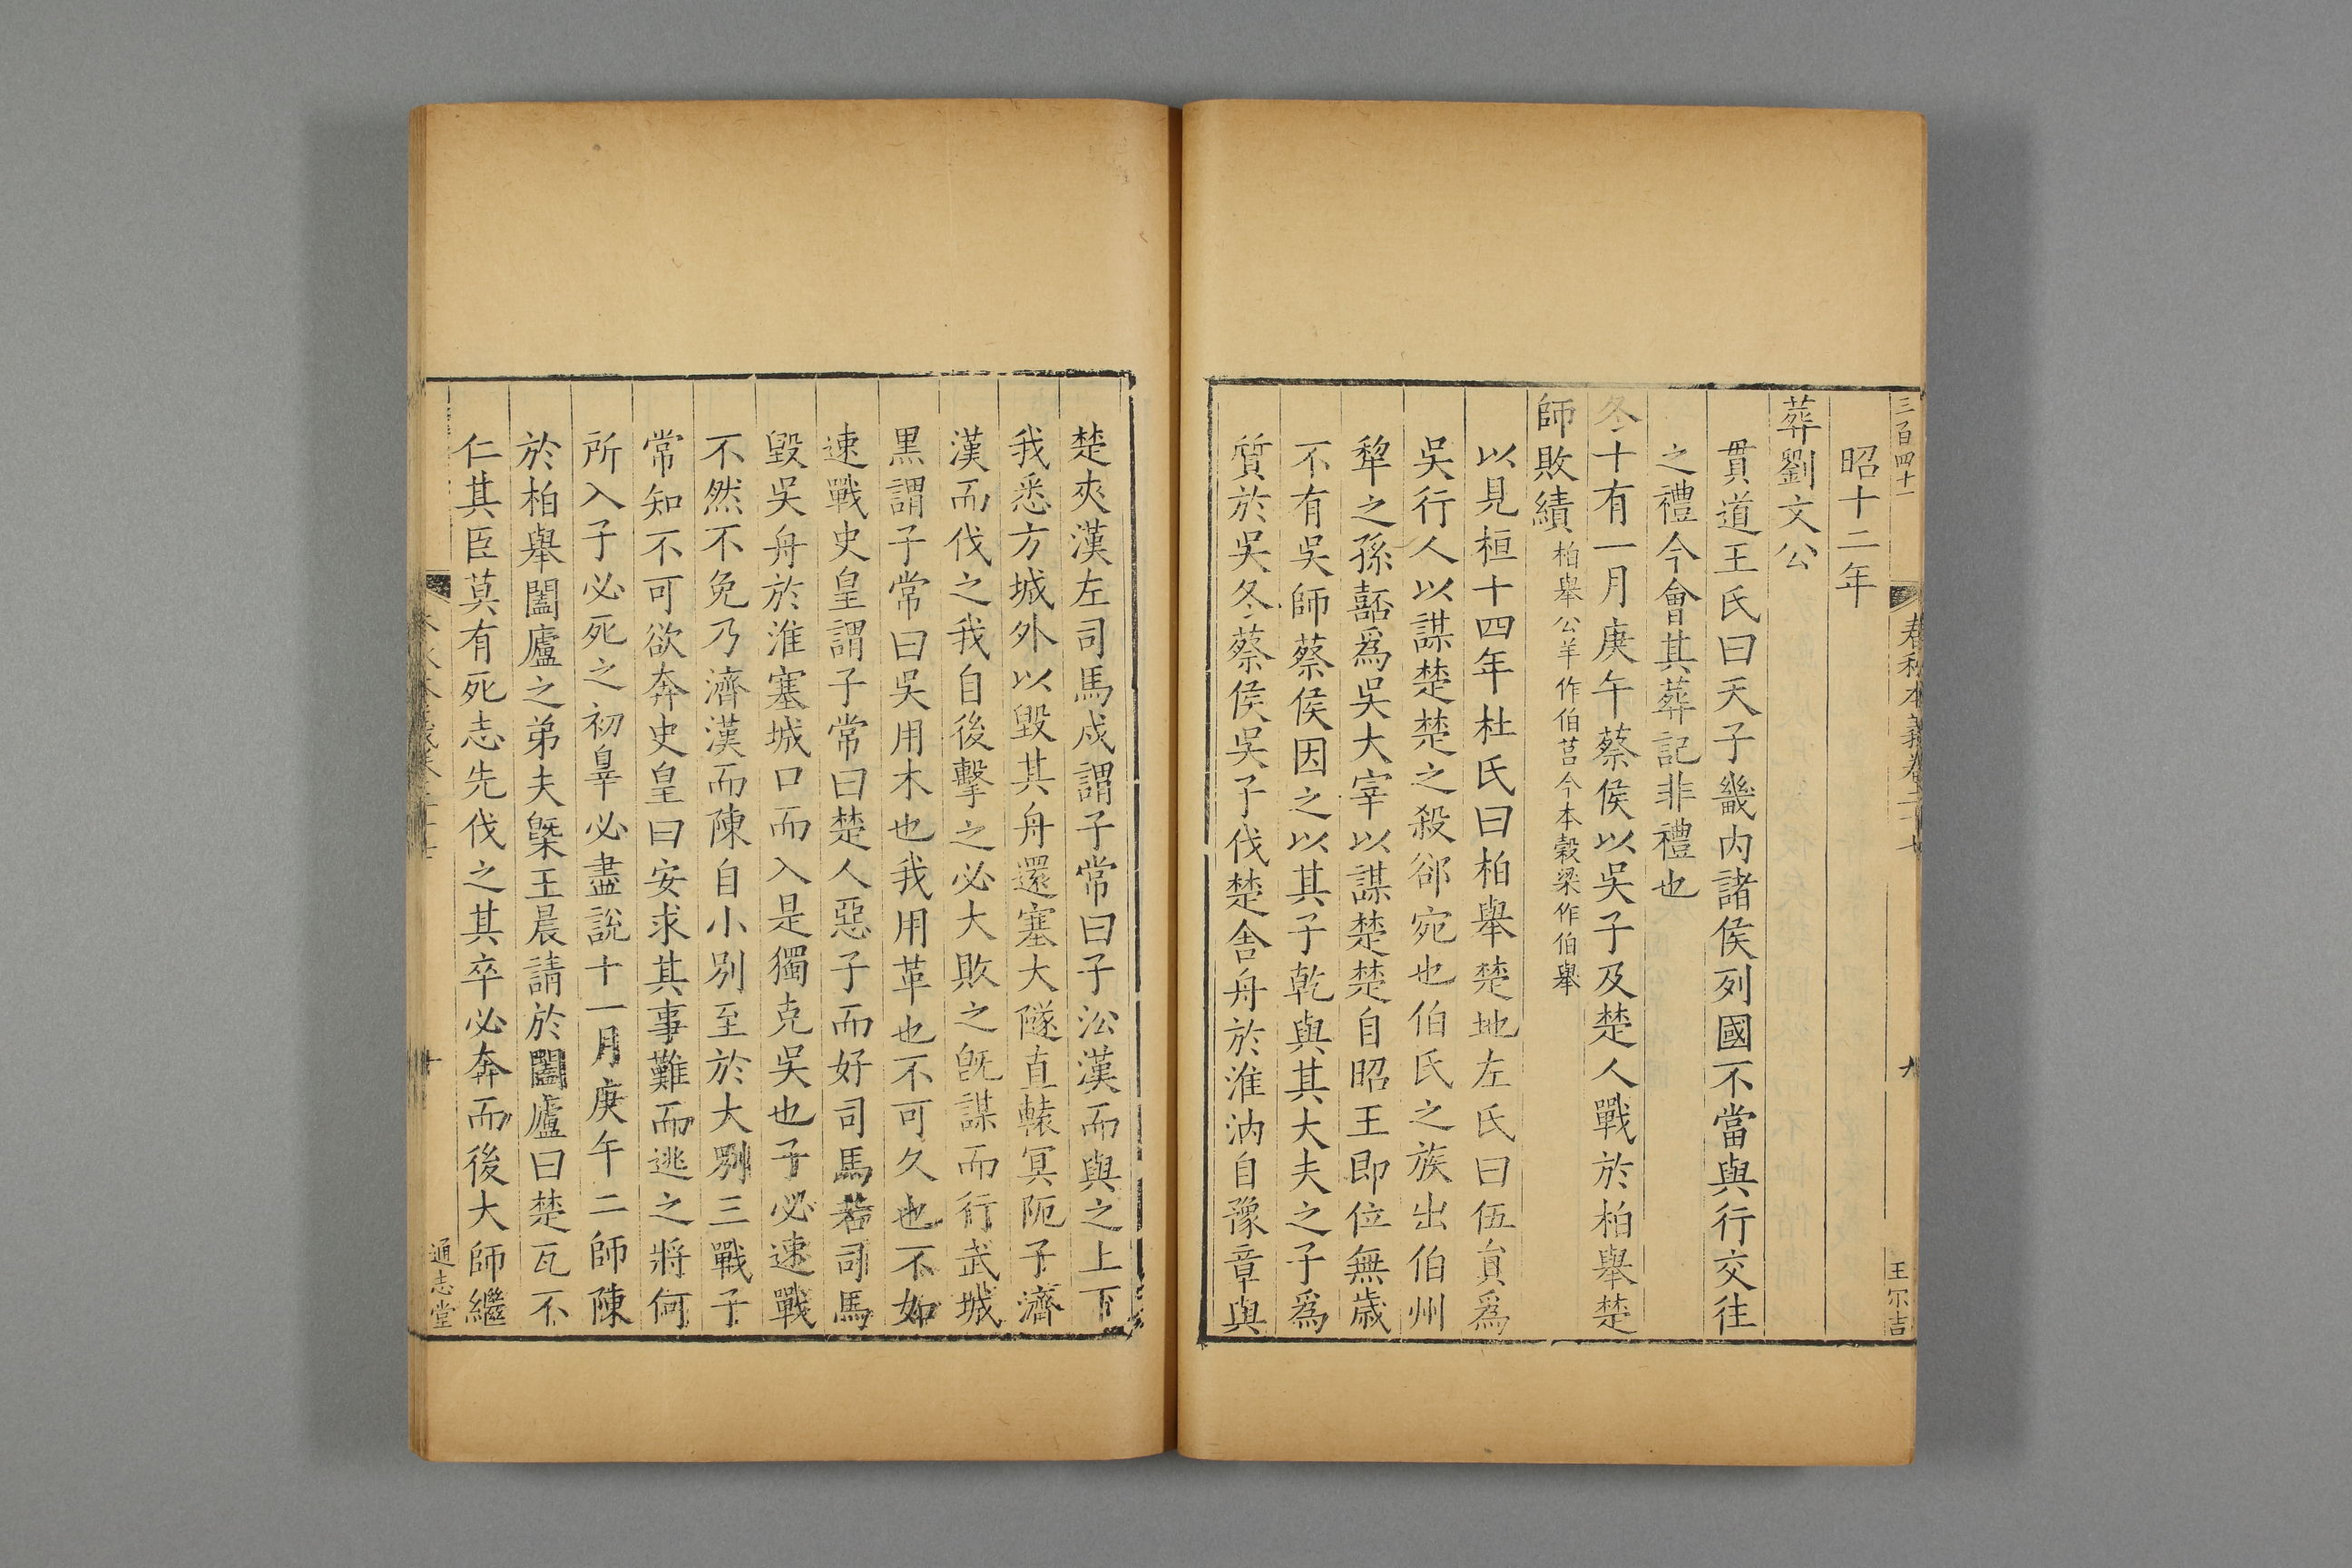 三百四十一
春秋本義卷二十七
九
王尔吉
昭十二年
葬劉文公
貫道王氏曰天子畿内諸侯列國不當與行交往
之禮今會其葬記非禮也
冬十有一月庚午蔡侯以吳子及楚人戰於柏舉楚
師敗績柏舉公羊作伯莒今本穀梁作伯舉
以見桓十四年杜氏曰柏舉楚地左氏曰伍員爲
吳行人以謀楚楚之殺郤宛也伯氏之族出伯州
犂之孫嚭爲吳大宰以謀楚楚自昭王即位無歲
不有吳師蔡侯因之以其子乾與其大夫之子爲
質於吳冬蔡侯吳子伐楚舍舟於淮汭自豫章與
楚夾漢左司馬戍謂子常曰子沿漢而與之上下
我悉方城外以毀其舟還塞大隧直轅冥阨子濟
漢而伐之我自後擊之必大敗之旣謀而行武城
黑謂子常曰吳用木也我用革也不可久也不如
速戰史皇謂子常曰楚人惡子而好司馬若司馬
毀吳舟於淮塞城口而入是獨克吳也子必速戰
不然不免乃濟漢而陳自小别至於大别三戰子
常知不可欲奔史皇曰安求其事難而逃之將何
所入子必死之初辠必盡說十一月庚午二師陳
於柏舉闔廬之弟夫槩王晨請於闔廬曰楚瓦不
仁其臣莫有死志先伐之其卒必奔而後大師繼
十
通志堂